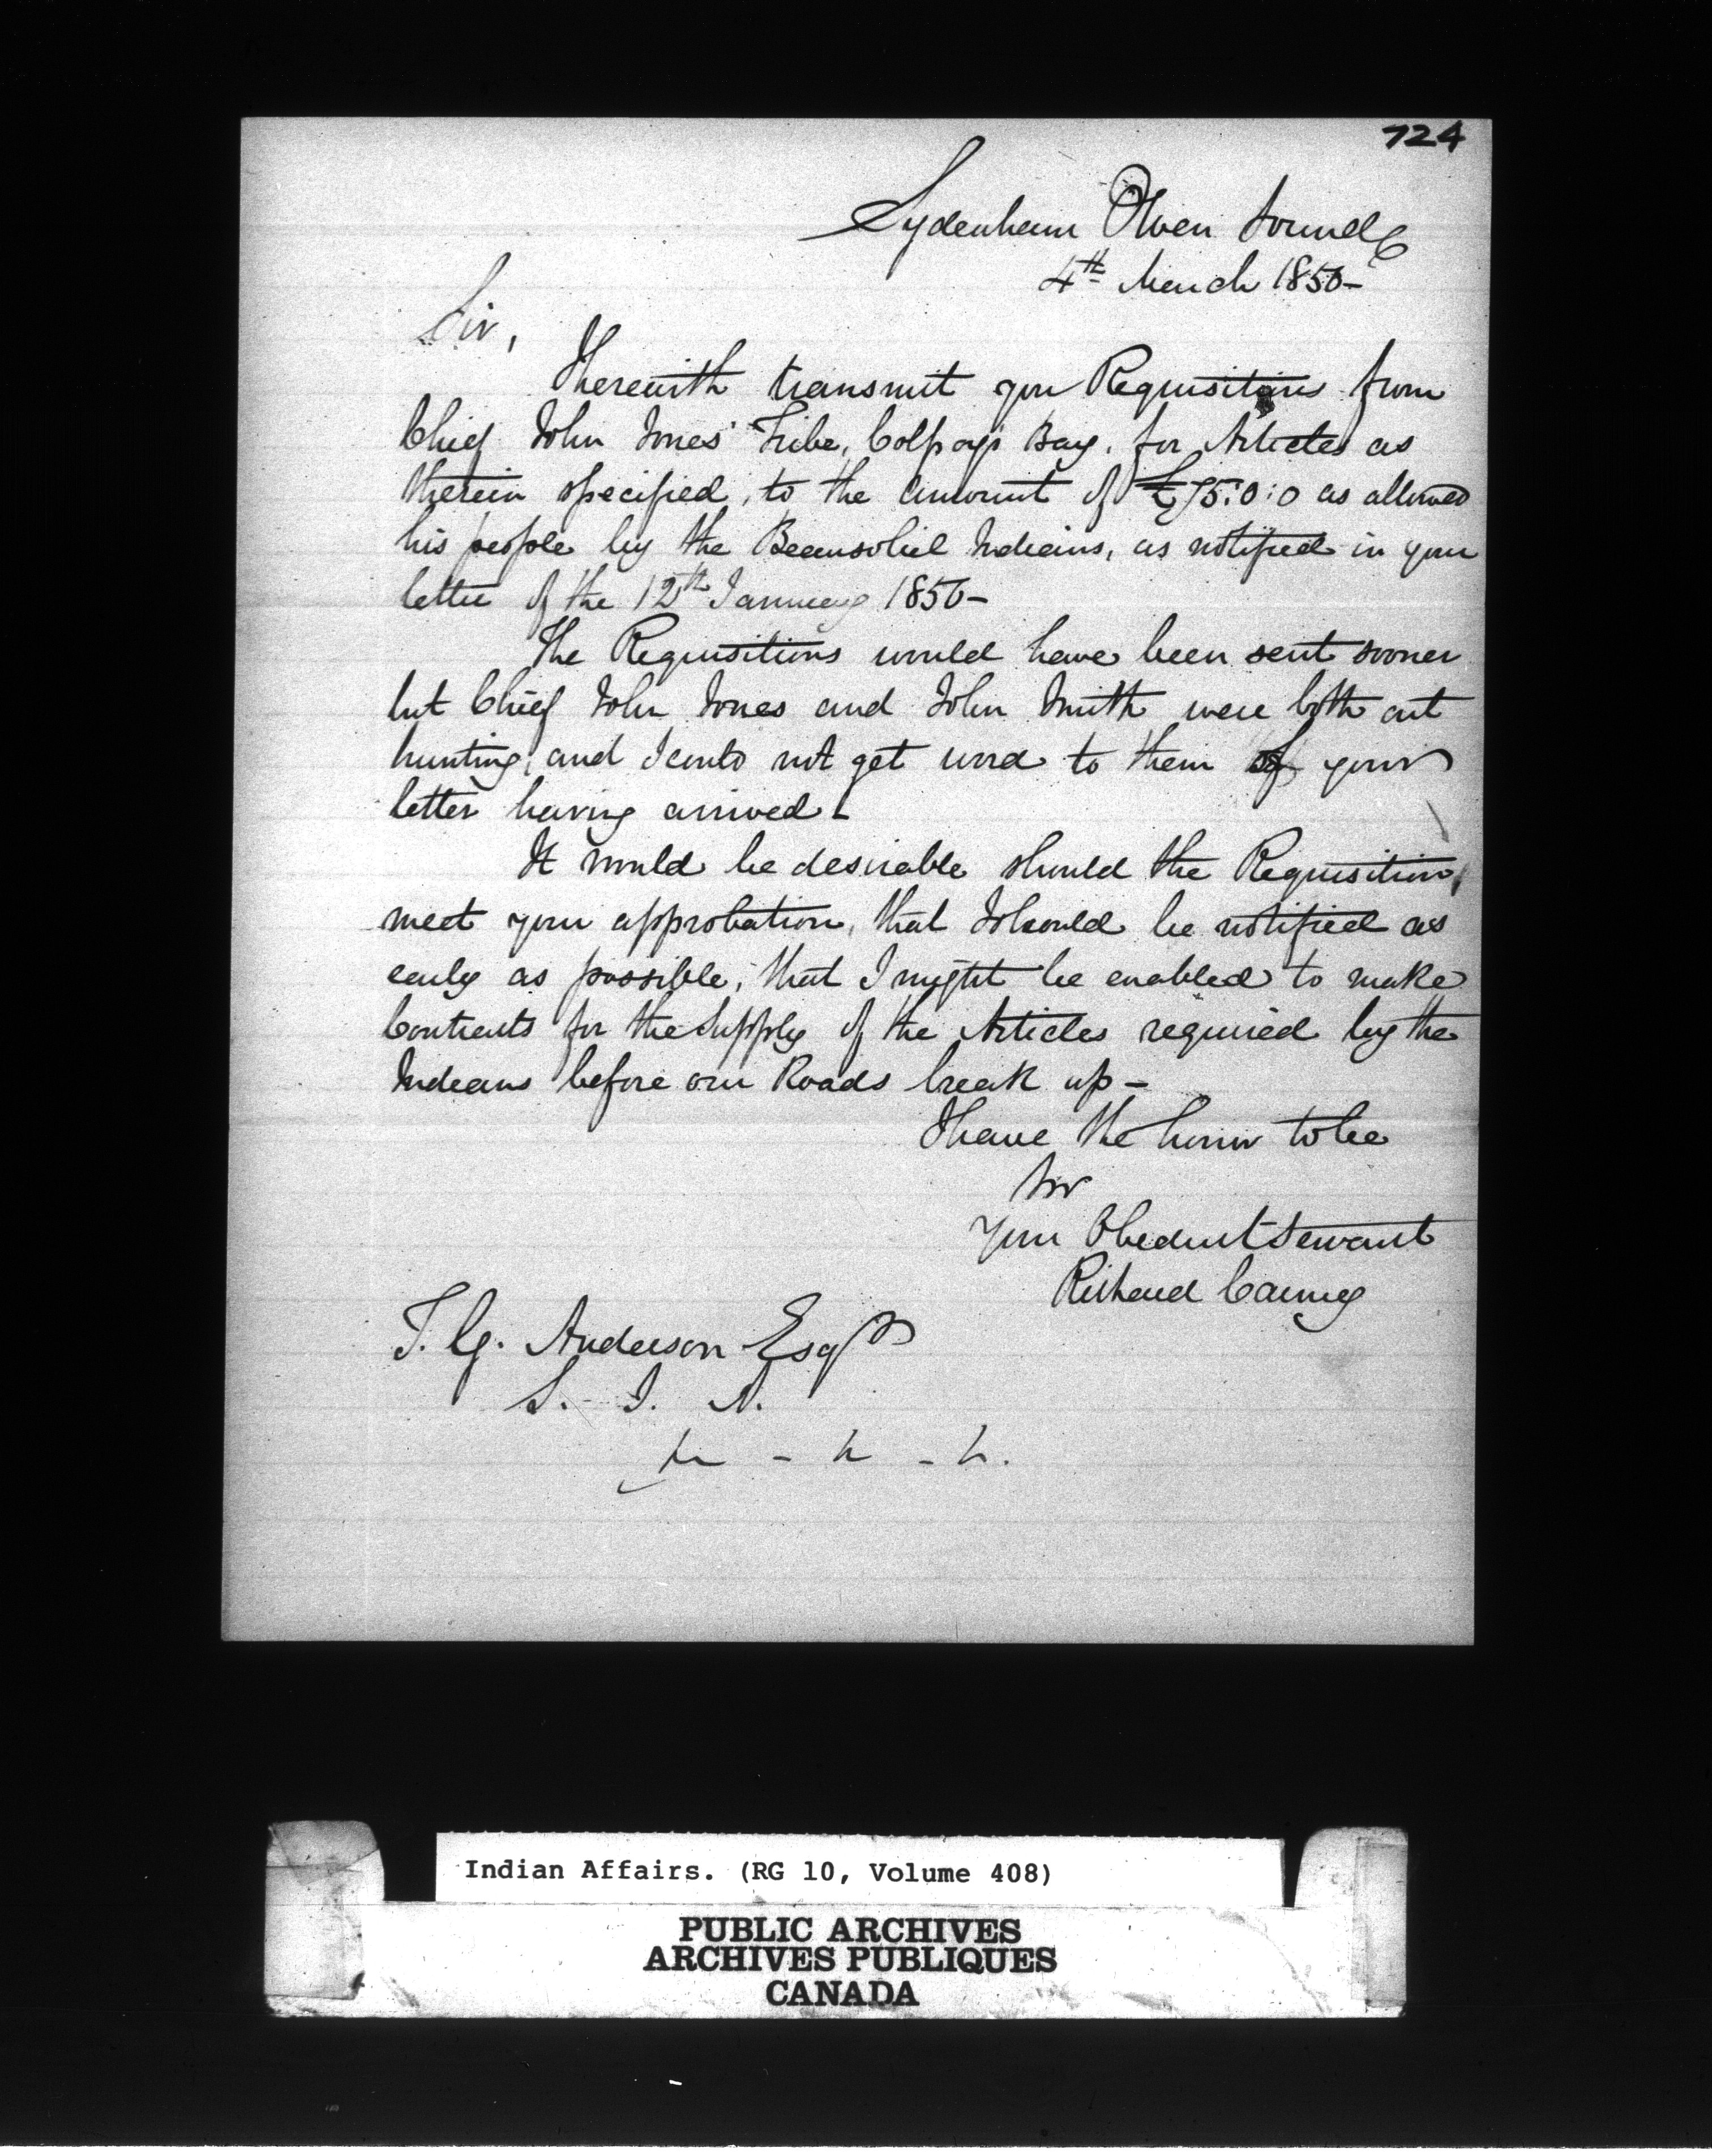 724
Sydenham Owen Sound
4th March 1850-
Sir,
I herewith transmit you Requisitions from
Chief John Jones' Tribe, Colpoy's Bay, for Articles as
therein specified, to the amount of £75:0:0 as allowed
his people by the Beausoliel Indians, as notified in your
letter of the 12th January 1850-
The Requisitions would have been sent sooner
but Chief John Jones and John Smith were both out
hunting, and I could not get word to them of your
letter having arrived.
It would be desirable should the Requisition,
meet your approbation, that I should be notified as
early as possible, that I might be enabled to make
Contracts for the Supply of the Articles required by the
Indians before our Roads break up-
I have the honor to be
Sir
Your Obedient Servant
Richard Carney
T. G. Anderson Esqr
S. I. A.
Indian Affairs. (RG 10, Volume 408)
PUBLIC ARCHIVES
ARCHIVES PUBLIQUES
CANADA